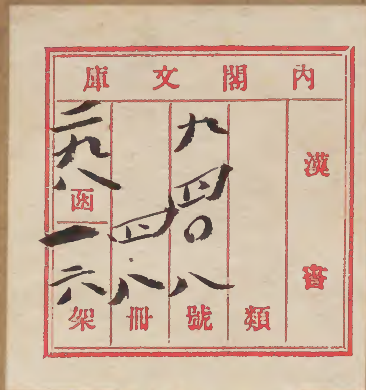 内閣文庫
漢書
類
九四〇八號
四八冊
二九八函
一六架